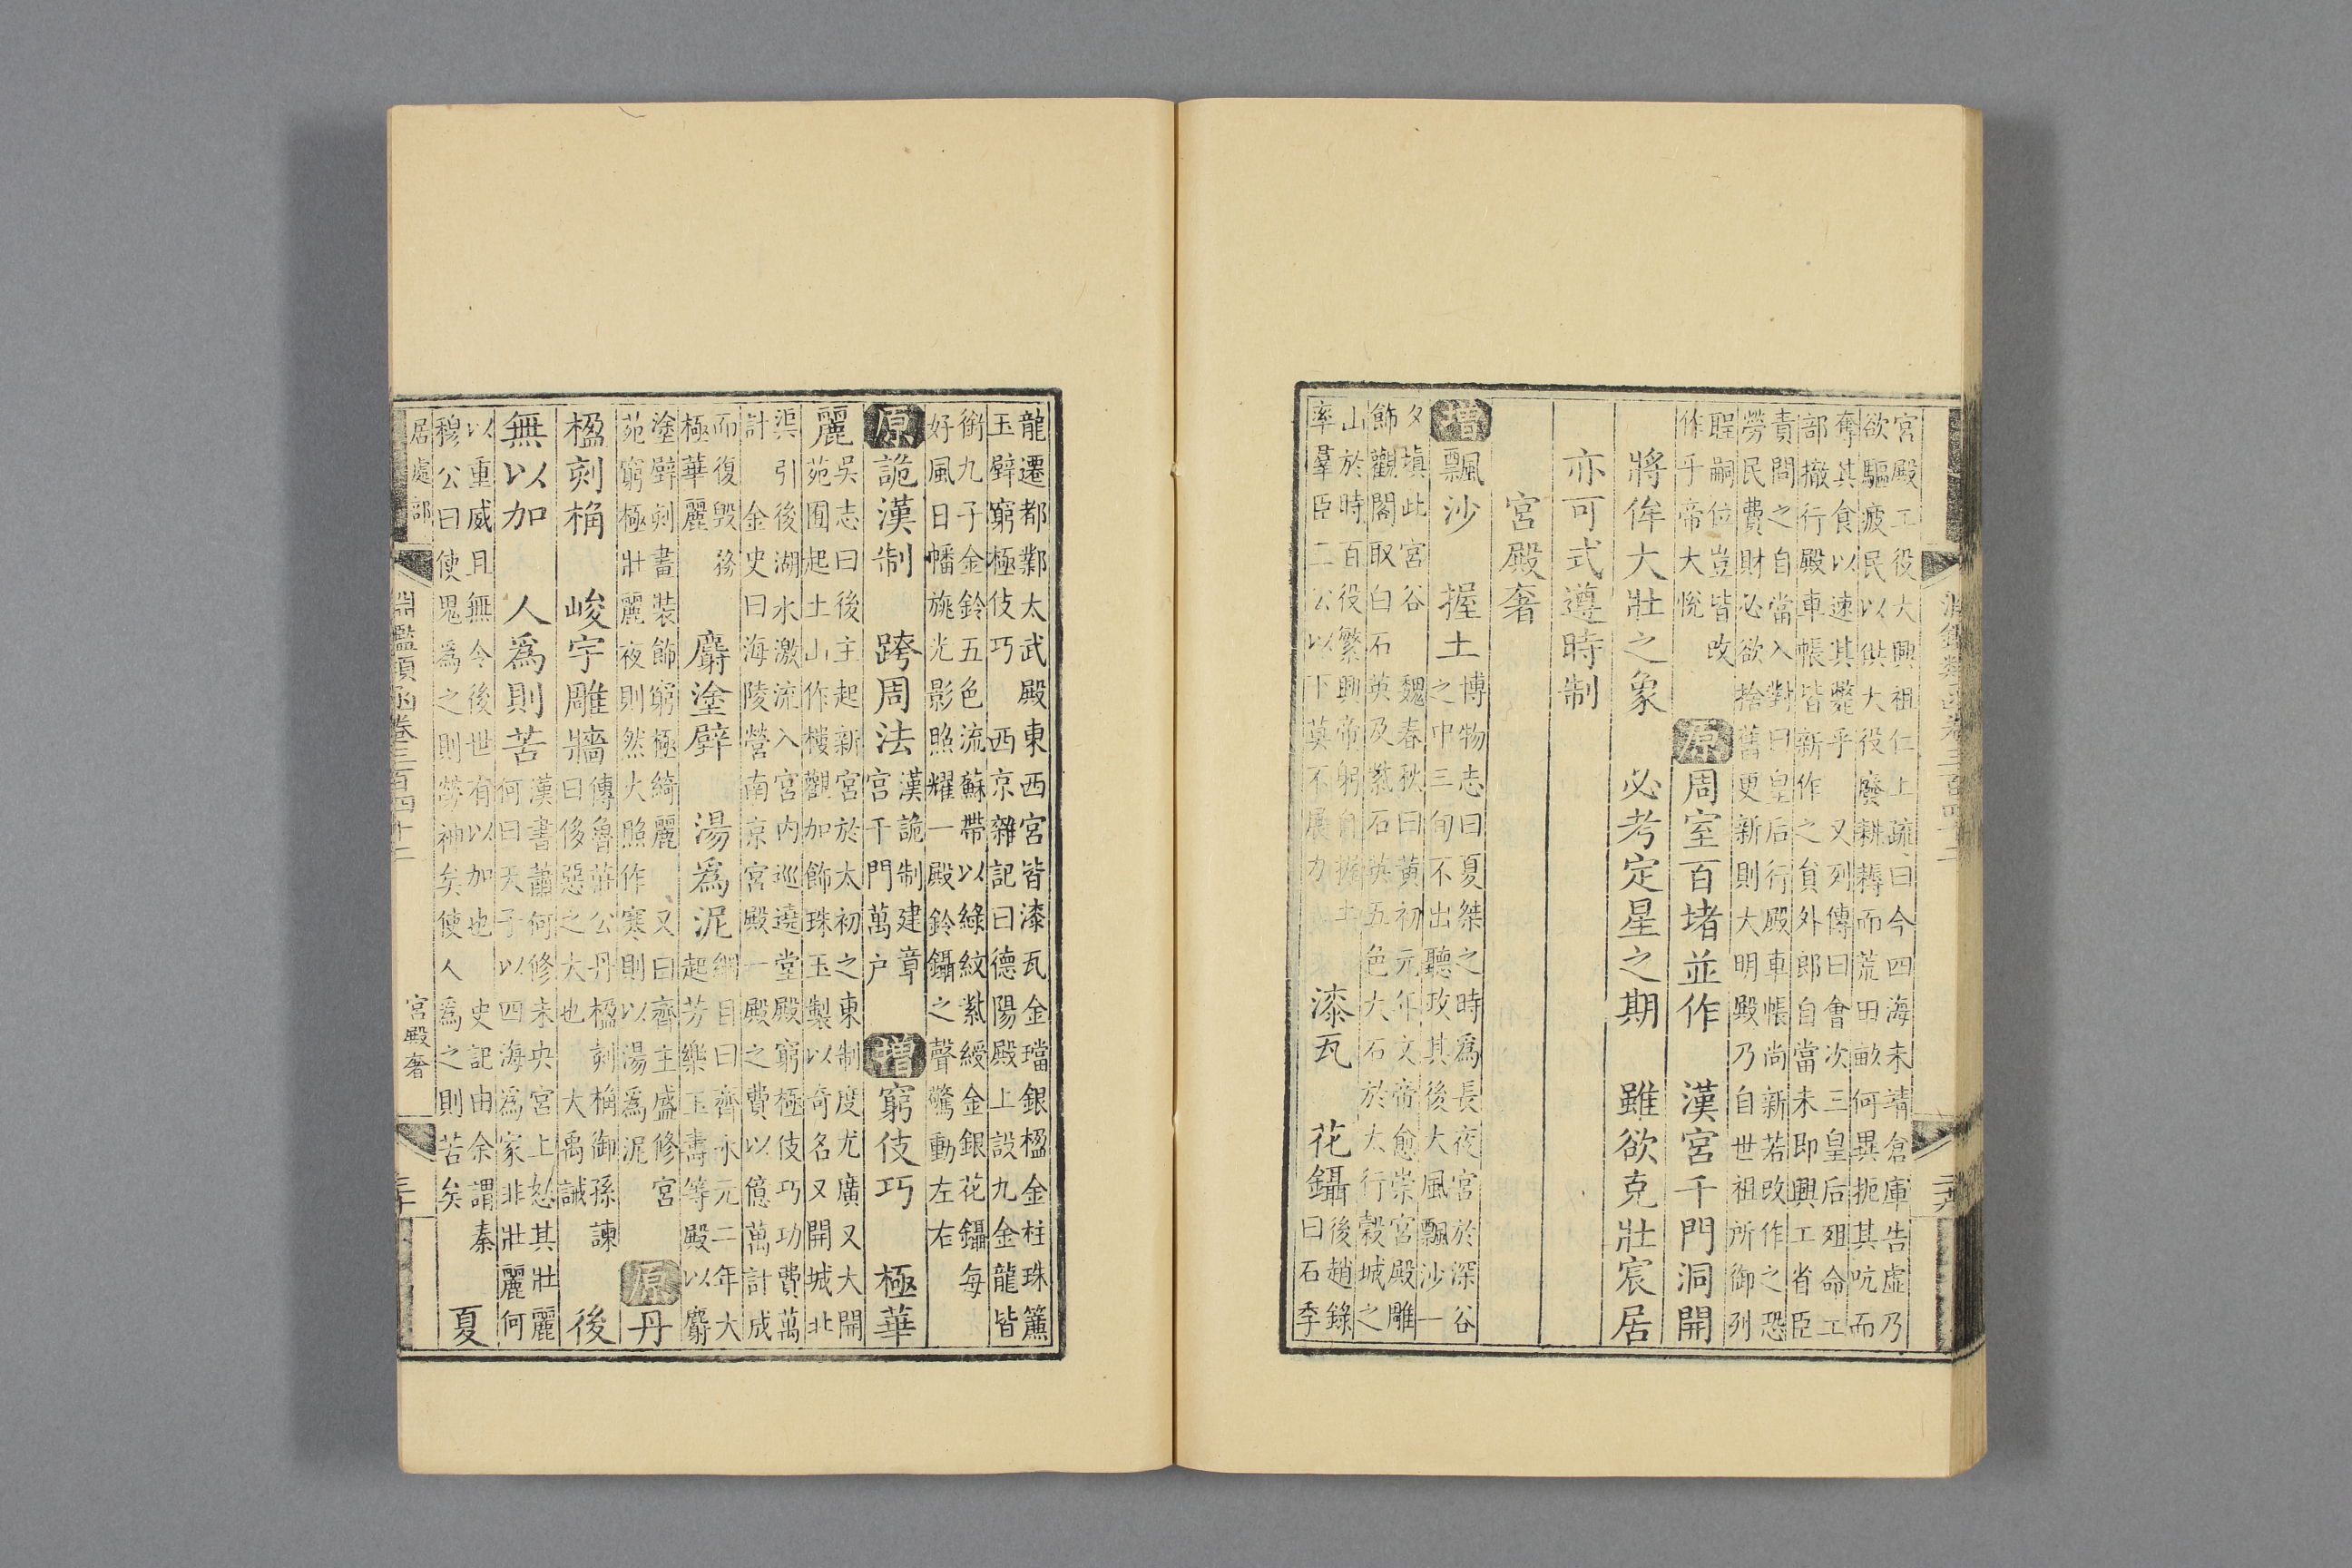 宮殿工役大興祖仁上疏曰今四海未靖倉庫告虛乃
欲驅疲民以供大役廢耕耨而荒田畝何異扼其吭而
奪其食以速其斃乎 又列傳曰會次三皇后殂命工
部撤行殿車帳皆新作之貟外郎自當未即興工省臣
責問之自當入對曰皇后行殿車帳尚新若改作之恐
勞民費財必欲捨舊更新則大明殿乃自世祖所御列
聖嗣位豈皆改
作乎帝大悅
原 周室百堵並作 漢宮千門洞開
將侔大壯之象 必考定星之期 雖欲克壯宸居
亦可式遵時制
宮殿奢
增 飄沙 握土
博物志曰夏桀之時爲長夜宮於深谷
之中三旬不出聽政其後大風飄沙一
夕塡此宮谷 魏春秋曰黃初元年文帝愈崇宮殿雕
飾觀閣取白石英及紫石英五色大石於太行穀城之
山於時百役繁興帝躬自掘土
率羣臣三公以下莫不展力
漆瓦 花鑷
後趙錄
曰石季
龍遷都鄴太武殿東西宮皆漆瓦金璫銀楹金柱珠簾
玉壁窮極伎巧 西京雜記曰德陽殿上設九金龍皆
銜九子金鈴五色流蘇帶以綠紋紫綬金銀花鑷每
好風日幡旄光影照耀一殿鈴鑷之聲驚動左右
原 詭漢制 跨周法
漢詭制建章
宮千門萬户
增 窮伎巧 極華
麗
吳志曰後主起新宮於太初之東制度尤廣又大開
苑囿起土山作樓觀加飾珠玉製以奇名又開城北
渠引後湖水激流入宮內巡遶堂殿窮極伎巧功費萬
計 金史曰海陵營南京宮殿一殿之費以億萬計成
而復毀務
極華麗
麝塗壁 湯爲泥
綱目曰齊永元二年大
起芳樂玉壽等殿以麝
塗壁刻畫裝飾窮極綺麗 又曰齊主盛修宮
苑窮極壯麗夜則然火照作寒則以湯爲泥
原 丹
楹刻桷 峻宇雕牆
傳魯莊公丹楹刻桷御孫諫
曰侈惡之大也 大禹誡
後
無以加 人爲則苦
漢書蕭何修未央宮上怒其壯麗
何曰天子以四海爲家非壯麗何
以重威且無令後世有以加也 史記由余謂秦
穆公曰使鬼爲之則勞神矣使人爲之則苦矣
夏
居處部 淵鑑類函卷三百四十二 宮殿奢 三十